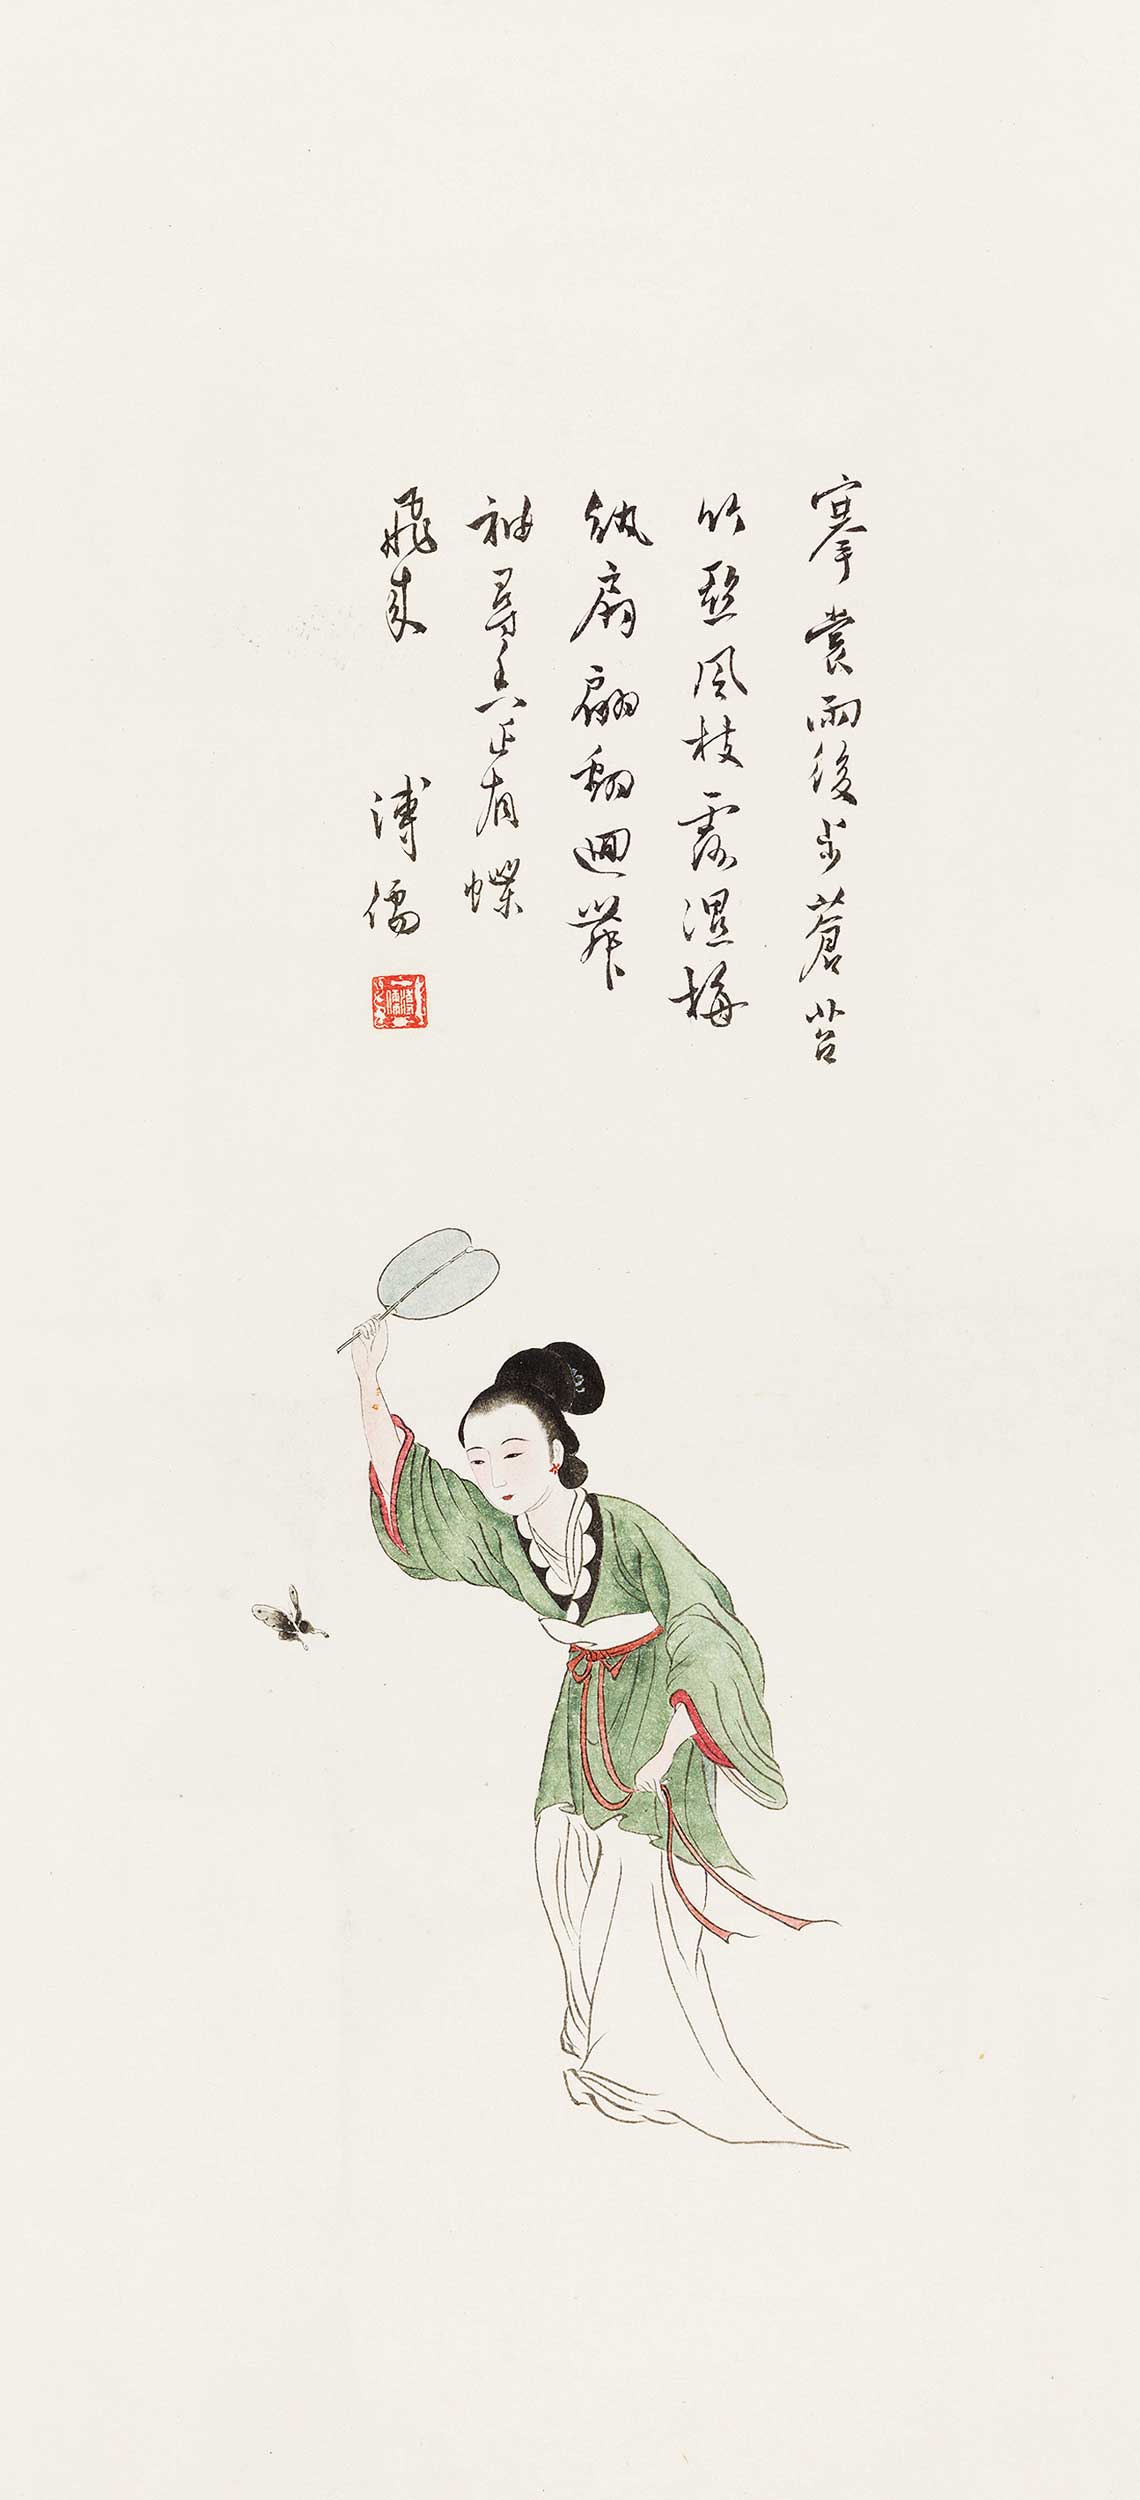 搴裳雨後步蒼苔
竹風枝露濕梅
紈扇翩翻迴舞
袖尋香正有蝶
飛來
溥儒
溥儒